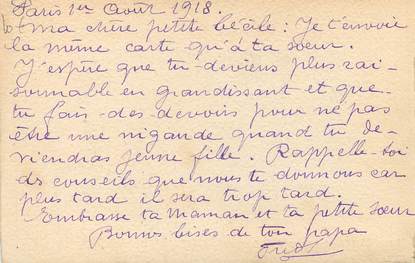 Paris 1er Août 1918.
Ma chère petite Cécile : Je t'envoie
la même carte qu'à ta sœur.
J'espère que tu deviens plus rai-
sonnable en grandissant et que
tu fais des devoirs pour ne pas
être une nigande quand tu de-
viendras jeune fille. Rappelle-toi
ds conseils que nous te donnons car
plus tard il sera trop tard.
Embrasse ta Maman et ta petite sœur
Bonnes bises de ton papa